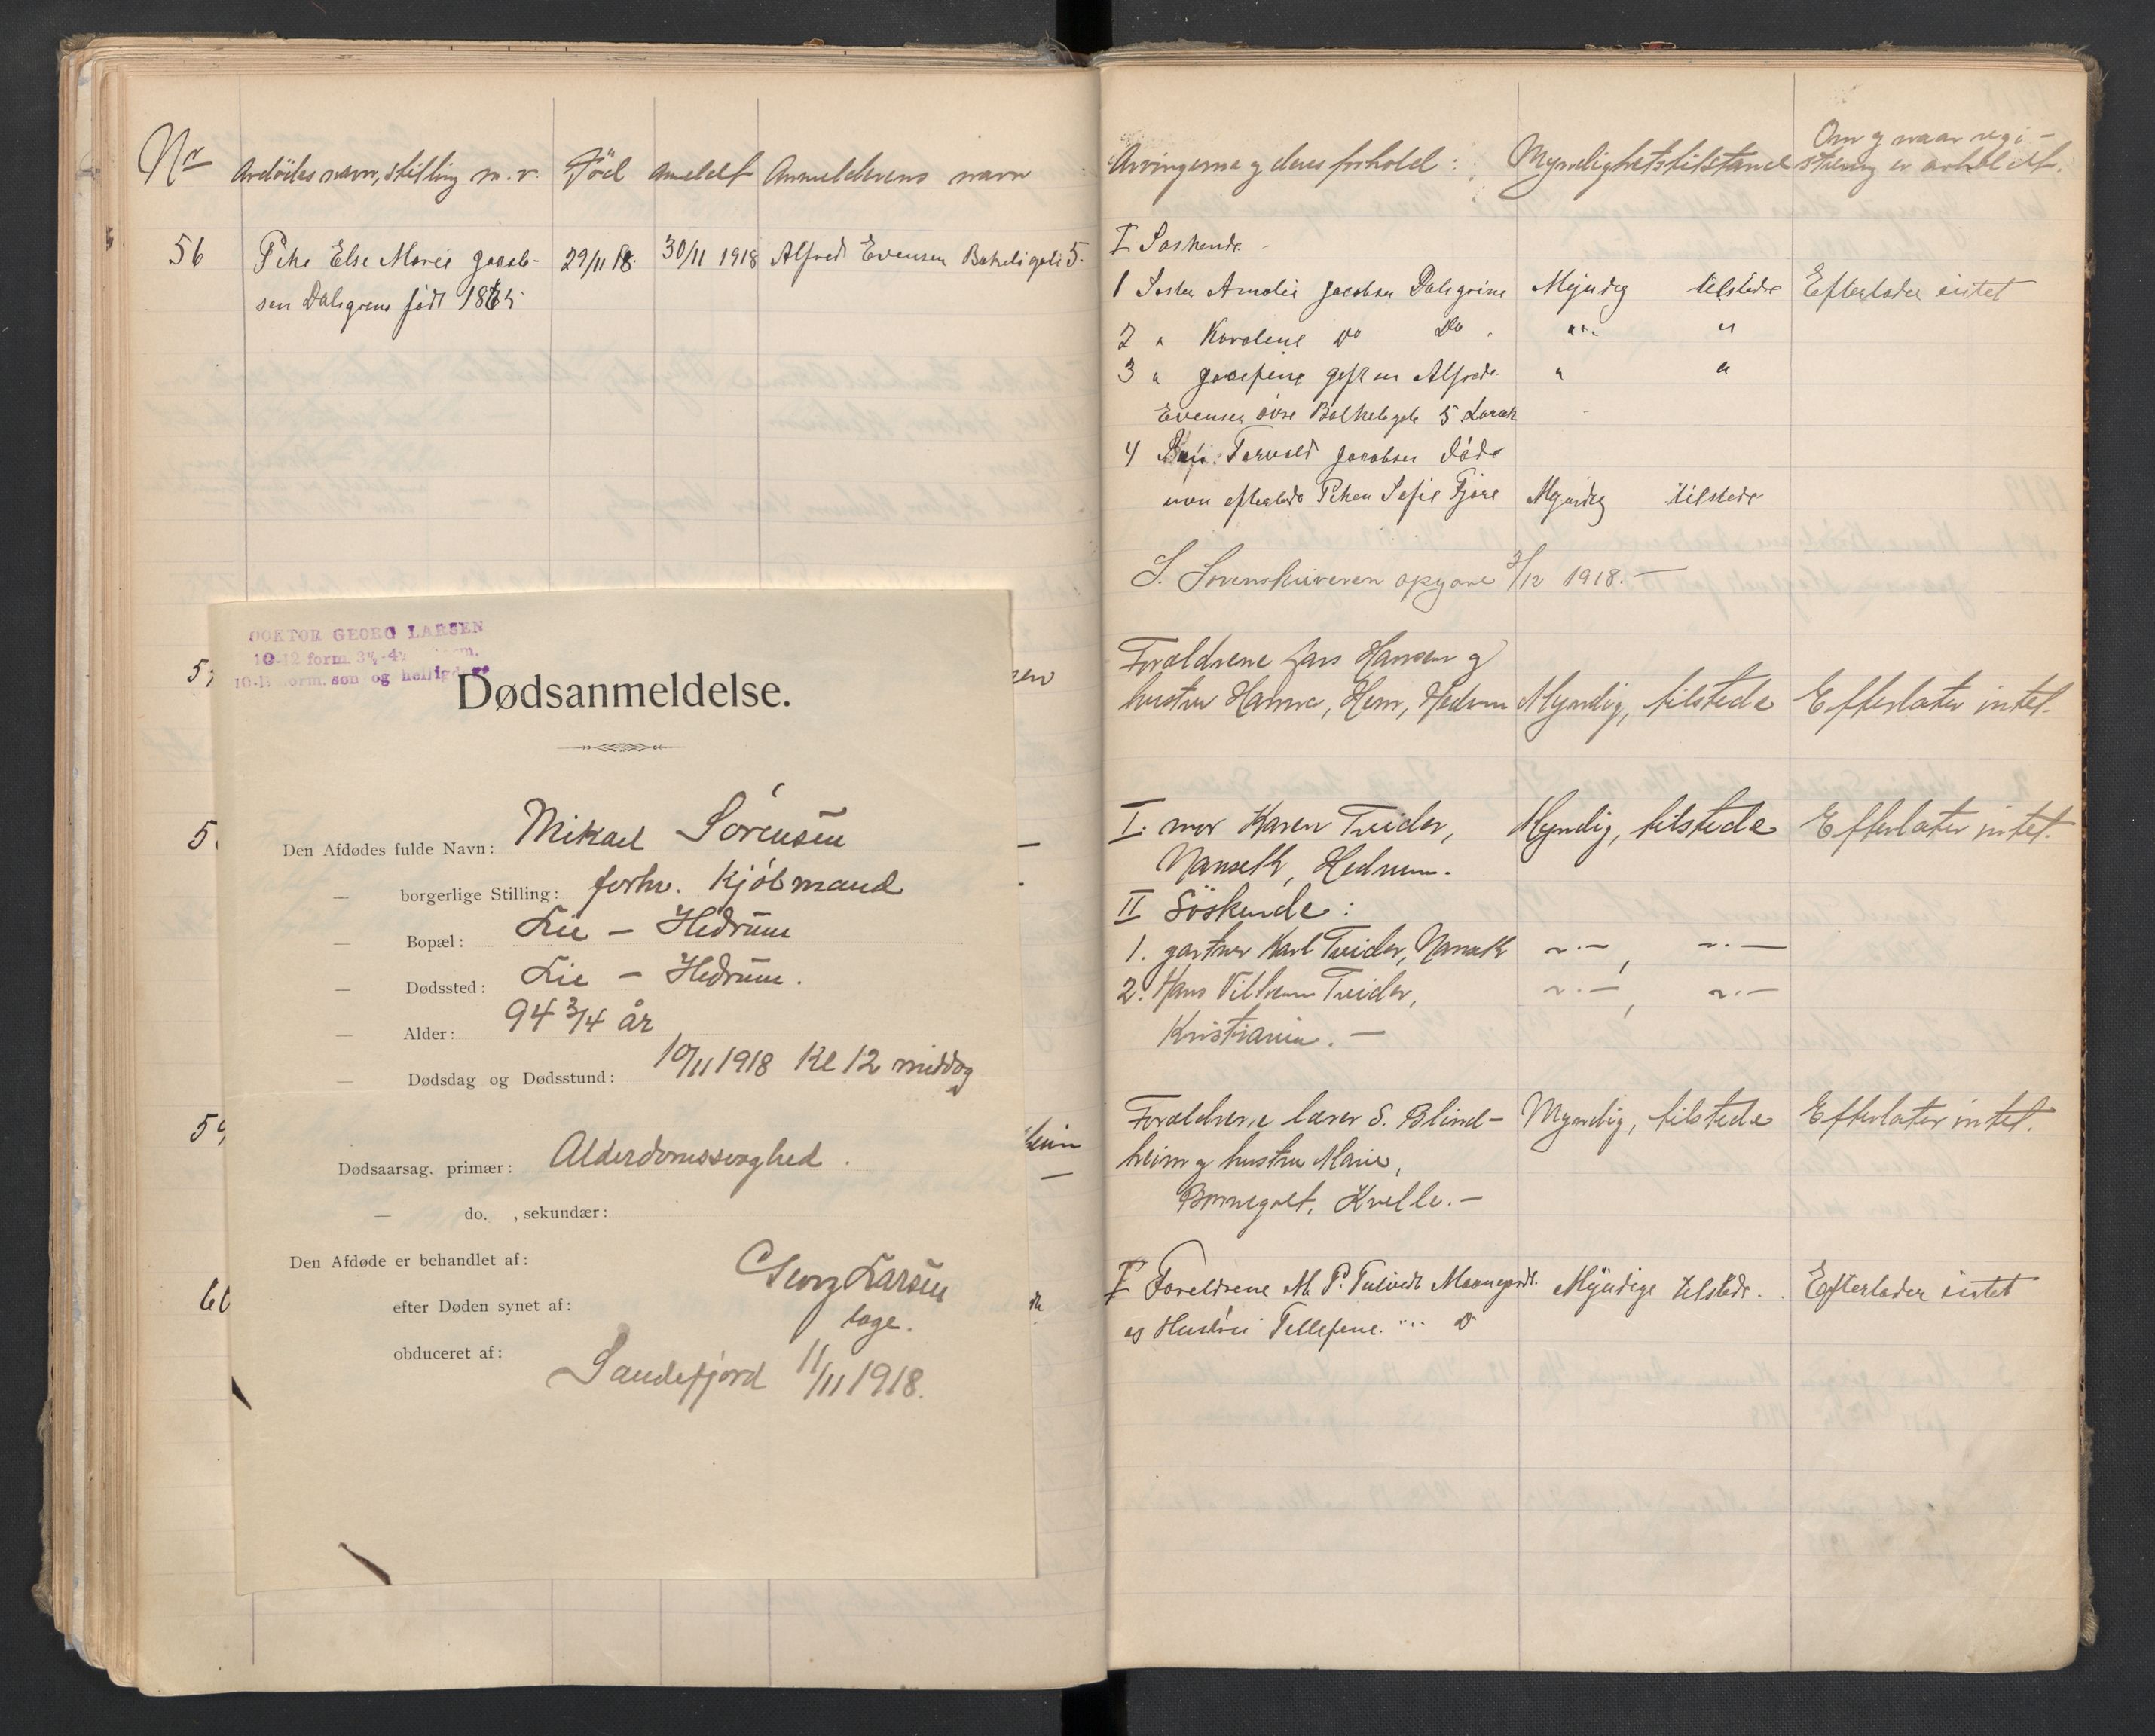 Nr
Avdödes navn, stilling m. v.
Död
anmeldt
Anmelderens navn
56
Pike Else Marie Jacob-
sen Dalsgrene født 1865
29/11 18.
30/11 1918
Alfred Evensen
5.
DOKTOR GEORG LARSEN
10-12 form.
10-11 form. søn og helligdage
Dødsanmeldelse.
Den Afdødes fulde Navn: Mikael Sörensen
— borgerlige Stilling: forhv. Kjöbmand
— Bopæl: Lie – Hedrum
— Dødssted: Lie – Hedrum.
— Alder: 94 3/4 år
— Dødsdag og Dødsstund: 10/11 1918 Kl 12 middag
Dødsaarsag. primær: Alderdomssvaghed.
— do. , sekundær:
Den Afdøde er behandlet af:
Georg Larsen
læge.
efter Døden synet af:
obduceret af:
Sandefjord 11/11 1918.
Arvingerne og deres forhold:
Myndighetstilstand
Om og naar regi-
strering er avholdt.
I Søskende
1 Søster Amalie Jacobsen Dalsgrene Myndig tilstede Efterlader intet
2 " Karoline Do Do " "
3 " Josefine gift m Alfred " "
Evensen øvre 5 Larvik
4 Torvald Jacobsen død
men efterladt Piken Sofie Myndig tilstede
S. Sorenskriveren opgave 3/12 1918. —
Forældrene Lars Hansen og
hustru Hanna, Hem, Hedrum Myndig, tilstede Efterlater intet.
I. mor Karen Tveider, Myndig, tilstede Efterlater intet.
Nanseth, Hedrum.
II Söskende:
1. gartner Karl Tveider, Nanseth
2. Hans Vilhelm Tveider,
Kristiania. —
Forældrene lærer S. Blind- Myndig, tilstede Efterlater intet.
heim og hustru Marie,
Kvelle. —
I Foreldrene M. P. Myndige tilstede. Efterlader intet
og Hustru